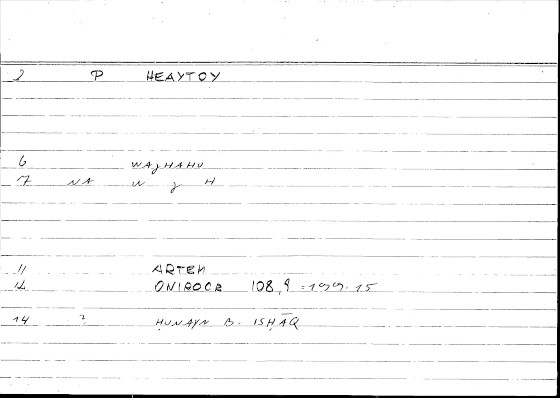 2 P HEAYTOY
6 WAJHAHU
7 NA W J H
11 ARTEM
12 ONIROCR 108,9 = 199.15
14 ? ḤUNAYN B. ISḤĀQ